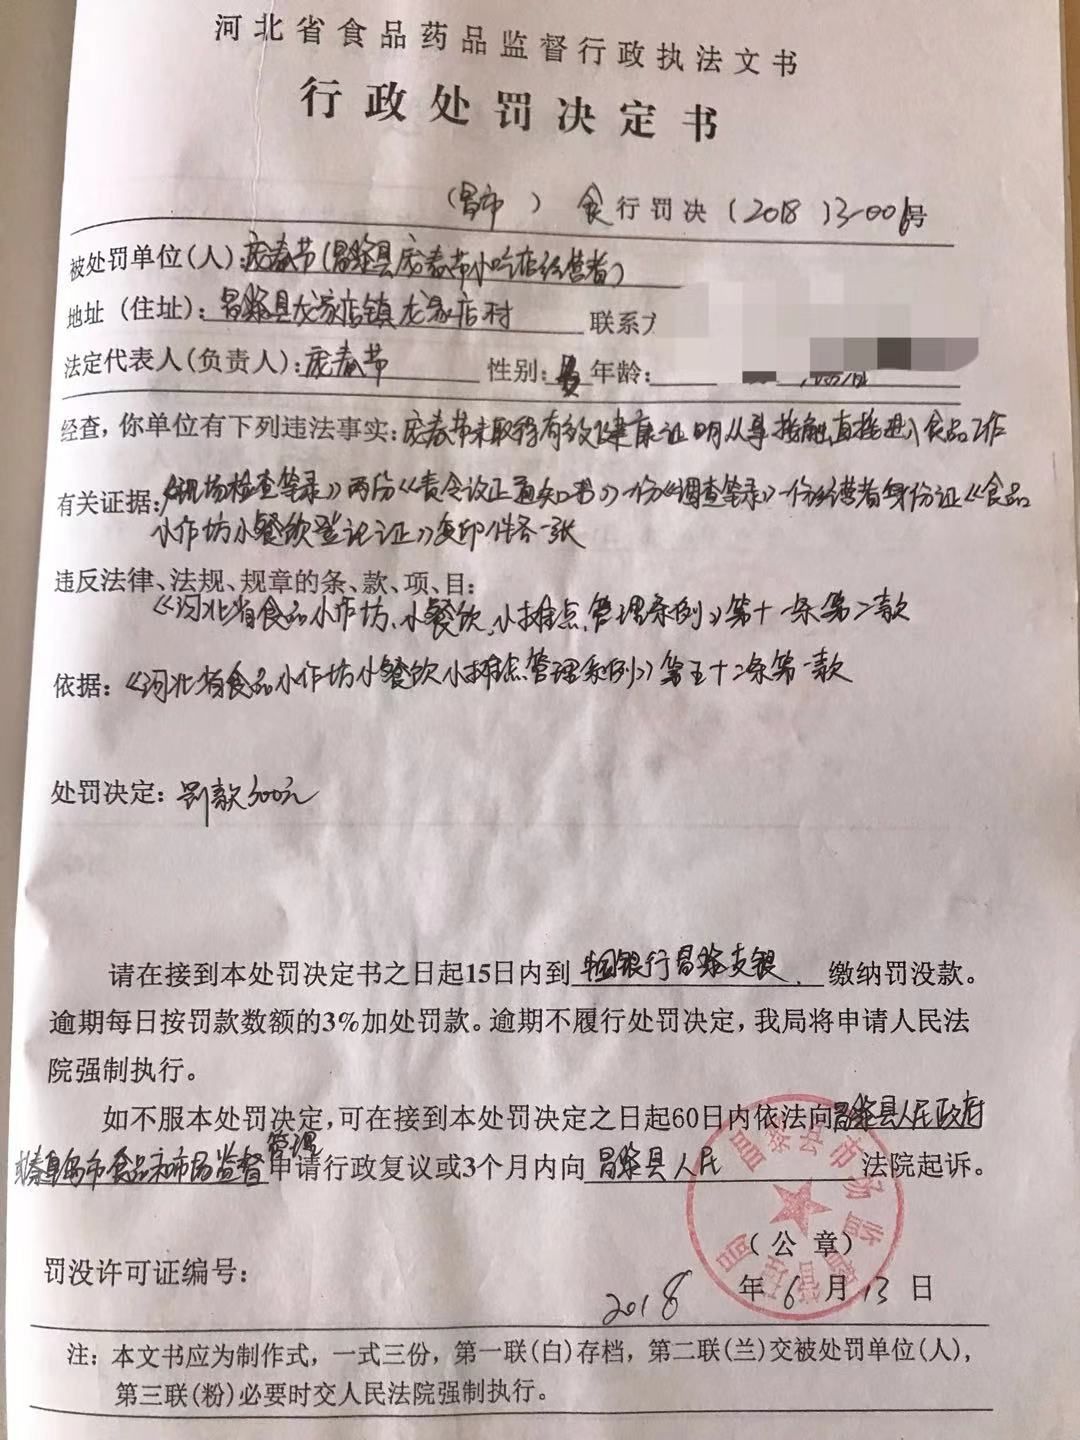 河北省食品药品监督行政执法文书
行政处罚决定书
(昌市) 食行罚决(2018)13-006号
被处罚单位(人):庞春节(昌黎县庞春节小吃店经营者)
地址(住址):昌黎县龙家店镇龙家店村 联系
法定代表人(负责人):庞春节 性别:男 年龄:
经查,你单位有下列违法事实:庞春节未取得有效健康证明从事接触直接进入食品工作
有关证据:《现场检查笔录》两份《责令改正通知书》一份《调查笔录》一份经营者身份证《食品
小作坊小餐饮登记证》复印件各一张
违反法律、法规、规章的条、款、项、目:
《河北省食品小作坊、小餐饮、小摊点管理条例》第十一条第二款
依据:《河北省食品小作坊小餐饮小摊点管理条例》第五十二条第一款
处罚决定:罚款300元
请在接到本处罚决定书之日起15日内到中国银行昌黎支银. 缴纳罚没款。
逾期每日按罚款数额的3%加处罚款。逾期不履行处罚决定,我局将申请人民法
院强制执行。
如不服本处罚决定,可在接到本处罚决定之日起60日内依法向昌黎县人民政府
或秦皇岛市食品和市场监督管理申请行政复议或3个月内向昌黎县人民法院起诉。
昌黎县市场监督管理局
(公章)
罚没许可证编号:
2018年6月13日
注:本文书应为制作式,一式三份,第一联(白)存档,第二联(兰)交被处罚单位(人),
第三联(粉)必要时交人民法院强制执行。